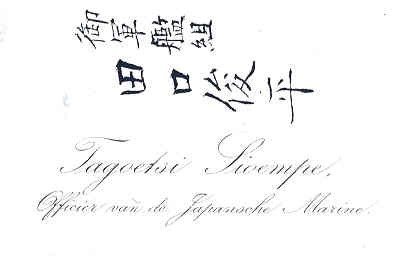 御軍艦組
田口俊平
Tagoetsi Sioempe.
Officier van de Japansche Marine.